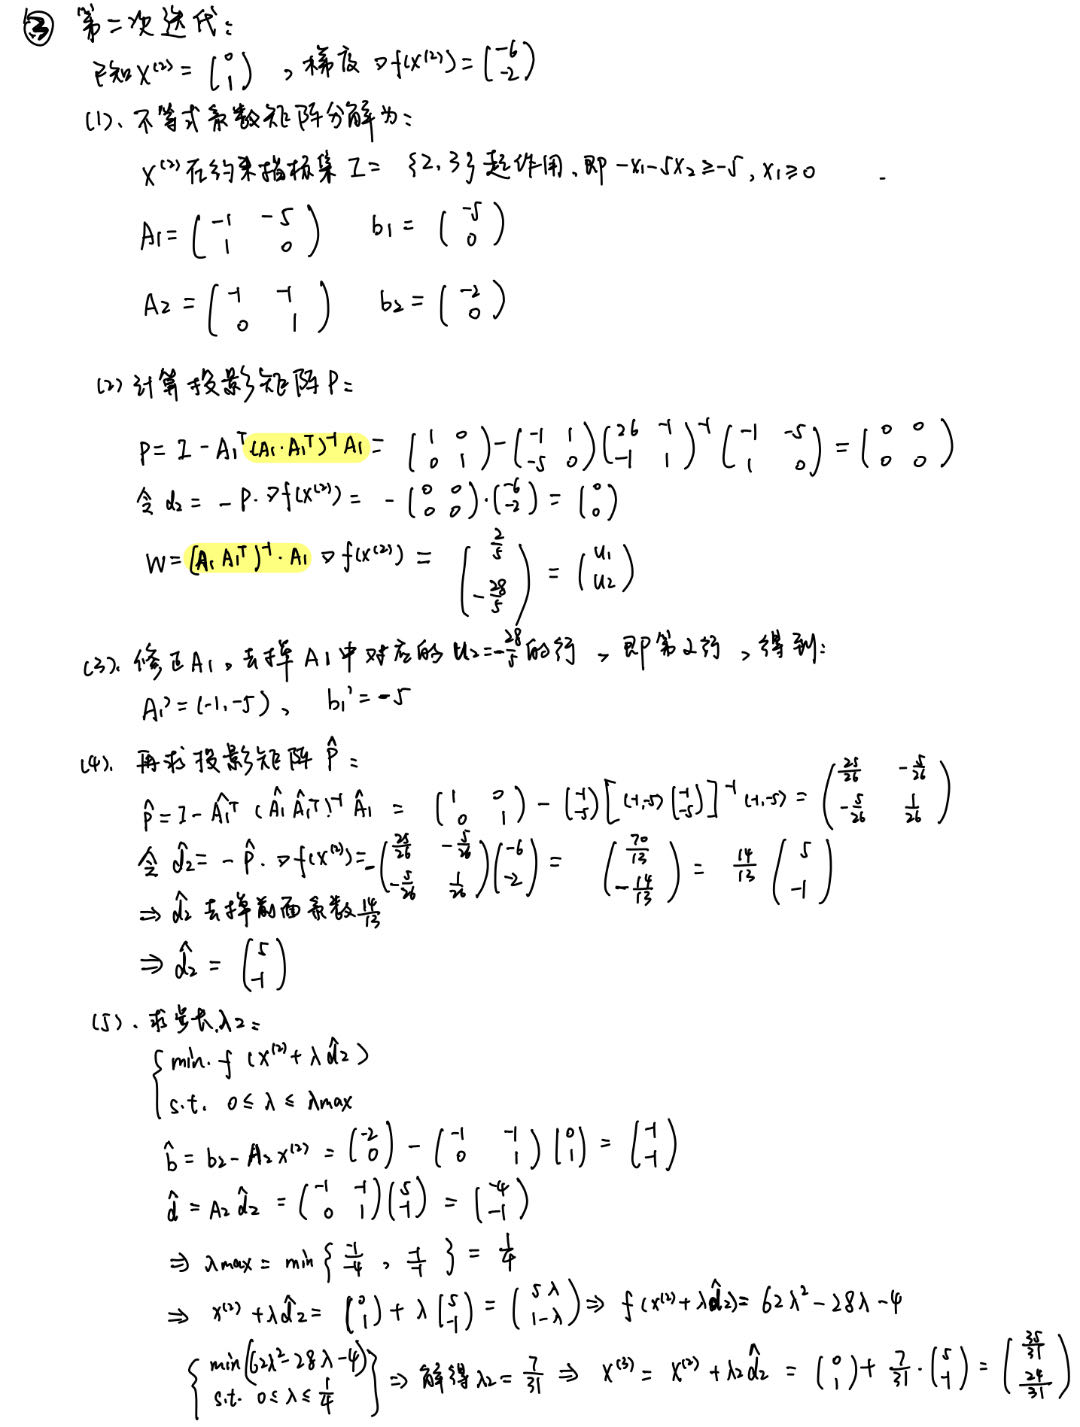 ③ 第二次迭代:
已知 X⁽²⁾ = (0 1), 梯度 ∇f(X⁽²⁾) = (-6 -2)
(1)、不等式系数矩阵分解为:
X⁽²⁾在约束指标集 I = {2,3}起作用、即 -x₁-5x₂≥-5, x₁≥0
A₁ = (-1 -5 1 0) b₁ = (-5 0)
A₂ = (-1 -1 0 1) b₂ = (-2 0)
(2) 计算投影矩阵P:
P = I - A₁ᵀ(A₁·A₁ᵀ)⁻¹A₁ = (1 0 0 1) - (-1 1 -5 0)(26 -1 -1 1)⁻¹(-1 -5 1 0) = (0 0 0 0)
令 d₂ = -P·∇f(X⁽²⁾) = -(0 0 0 0)·(-6 -2) = (0 0)
W = (A₁A₁ᵀ)⁻¹·A₁∇f(X⁽²⁾) = (2/5 -28/5) = (u₁ u₂)
(3)、修正A₁, 去掉A₁中对应的u₂=-28/5的行, 即第2行, 得到:
A₁' = (-1,-5)、 b₁' = -5
(4)、再求投影矩阵 P̂:
P̂ = I - Â₁ᵀ(Â₁Â₁ᵀ)⁻¹Â₁ = (1 0 0 1) - (-1 -5)[(-1,-5)(-1 -5)]⁻¹(-1,-5) = (25/26 -5/26 -5/26 1/26)
令 d̂₂ = -P̂·∇f(X⁽²⁾) = -(25/26 -5/26 -5/26 1/26)(-6 -2) = (70/13 -14/13) = 14/13 (5 -1)
⇒ d̂₂ 去掉前面系数 14/13
⇒ d̂₂ = (5 -1)
(5)、求步长λ₂:
min. f(X⁽²⁾+λd̂₂)
s.t. 0≤λ≤λmax
b̂ = b₂-A₂X⁽²⁾ = (-2 0) - (-1 -1 0 1)(0 1) = (-1 -1)
d̂ = A₂d̂₂ = (-1 -1 0 1)(5 -1) = (-4 -1)
⇒ λmax = min{-1/-4, -1/-1} = 1/4
⇒ X⁽²⁾+λd̂₂ = (0 1)+λ(5 -1) = (5λ 1-λ) ⇒ f(X⁽²⁾+λd̂₂) = 62λ²-28λ-4
{min(62λ²-28λ-4) s.t. 0≤λ≤1/4} ⇒ 解得λ₂ = 7/31 ⇒ X⁽³⁾ = X⁽²⁾+λ₂d̂₂ = (0 1)+7/31·(5 -1) = (35/31 24/31)